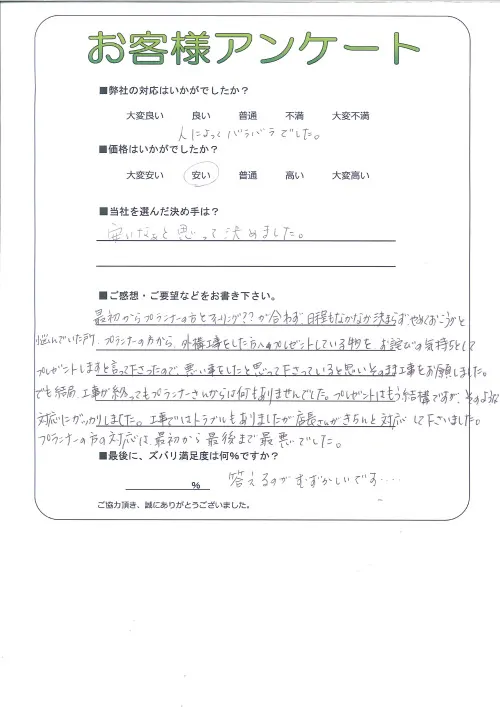 お客様アンケート
■弊社の対応はいかがでしたか?
大変良い 良い 普通 不満 大変不満
人によってバラバラでした。
■価格はいかがでしたか?
大変安い 安い 普通 高い 大変高い
■当社を選んだ決め手は?
安いなぁと思って決めました。
■ご感想・ご要望などをお書き下さい。
最初からプランナーの方とフィーリング??が合わず、日程もなかなか決まらず、やめておこうかと
悩んでいた所、プランナーの方から、外構工事をした方へプレゼントしている物を、お詫びの気持ちとして
プレゼントしますと言って下さったので、悪い事をしたと思って下さっていると思いそのまま工事をお願しました。
でも結局、工事が終ってもプランナーさんからは何もありませんでした。プレゼントはもう結構ですが、そのような
対応にガッカリしました。工事ではトラブルもありましたが店長さんがきちんと対応して下さいました。
プランナーの方の対応は、最初から最後まで最悪でした。
■最後に、ズバリ満足度は何%ですか?
% 答えるのがむずかしいです‥‥
ご協力頂き、誠にありがとうございました。